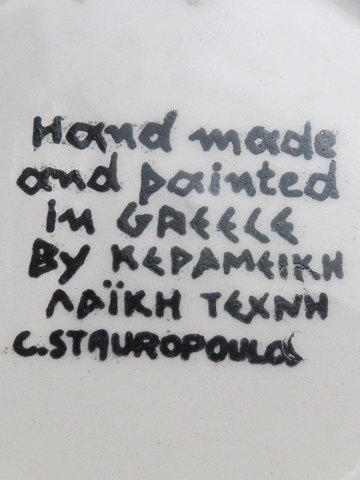 Hand made
and painted
in GREECE
By ΚΕΡΑΜΕΙΚΗ
ΛΑΪΚΗ ΤΕΧΝΗ
C. STAUROPOULOS